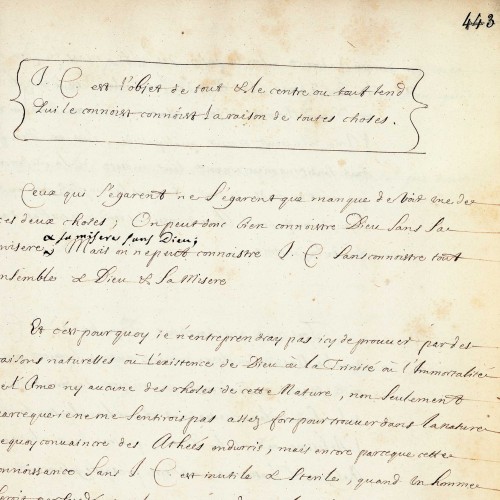 443
J. C. est l'objet de tout & le centre ou tout tend
Qui le connoist connoist la raison de toutes choses.
Ceux qui s'egarent ne s'egarent que manque de voir une de
ces deux choses; On peut donc bien connoistre Dieu sans sa
& sa misere sans Dieu;
misere Mais on ne peut connoistre J. C. sans connoistre tout
ensemble & Dieu & sa Misere
Et c'est pourquoy je n'entreprendray pas icy de prouver par des
raisons naturelles ou l'existence de Dieu ou la Trinité ou l'Immortalité
de l'Ame ny aucune des choses de cette Nature, non seulement
parceque je ne me sentirois pas assez fort pour trouver dans la nature
dequoy convaincre des Athées endurcis, mais encore parceque cette
connoissance sans J. C. est inutile & sterile; quand un homme